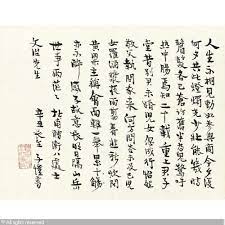 人生不相見動如參與商今夕復
何夕共此燈燭光少壯能幾時
鬢髮各已蒼訪舊半為鬼驚呼
熱中腸焉知二十載重上君子
堂昔別君未婚兒女忽成行怡然
敬父執問我來何方問答未及已兒
女羅酒漿夜雨剪春韭新炊間
黃粱主稱會面難一舉累十觴
亦不醉感子故意長明日隔山岳
世事兩茫茫 衛八處士
先生 子愷書